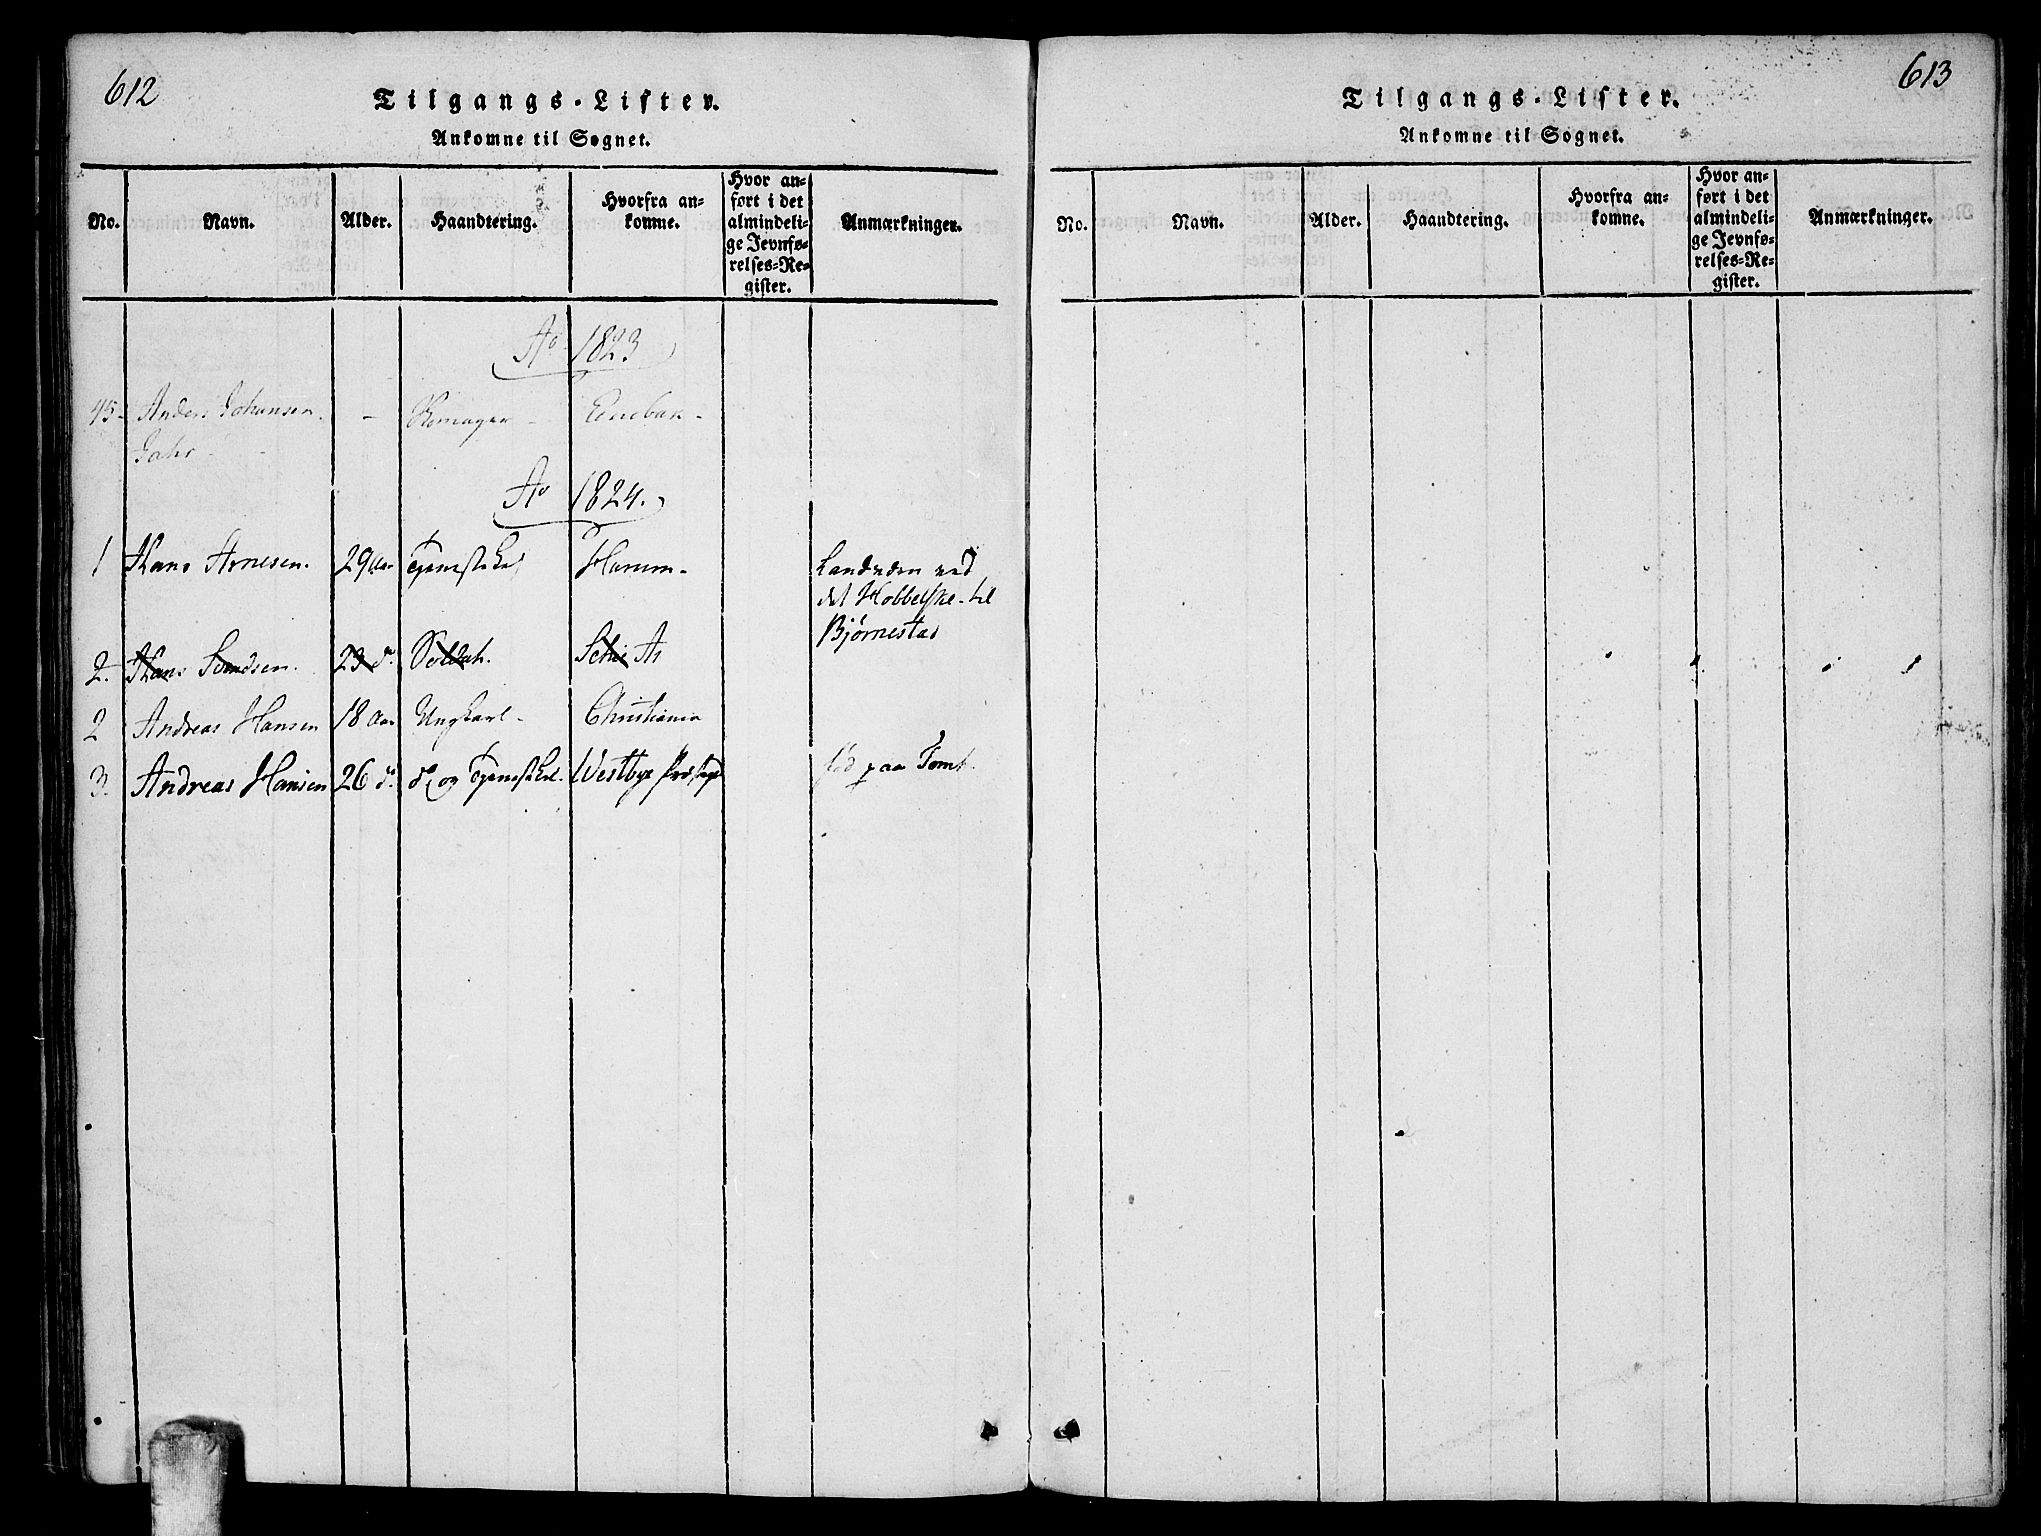 612
Tilgangs-Lister.
Ankomne til Sognet.
No. Navn. Alder. Haandtering. Hvorfra an-
komme. Hvor an-
ført i det
almindeli-
ge Jevnfø-
relses-Re-
gister. Anmærkninger.
Ao 1823
45- Anders Johansen - Skomager - Enebak-
Ao 1824.
1 Hans Arnesen. 29 Aar Tjenestekarl
ved
det Hobbelske til
Bjørnestad
2. Hans 23 do. Soldat. As
2 Andreas Hansen 18 Aar Ungkarl- Christiania
3. Andreas Hansen 26 do do og Tjenestekarl. Westbye Præstegd
fød paa Tomt
613
Tilgangs-Lister.
Ankomne til Sognet.
No. Navn. Alder. Haandtering. Hvorfra an-
komne. Hvor an-
ført i det
almindeli-
ge Jevnfø-
relses-Re-
gister. Anmærkninger.